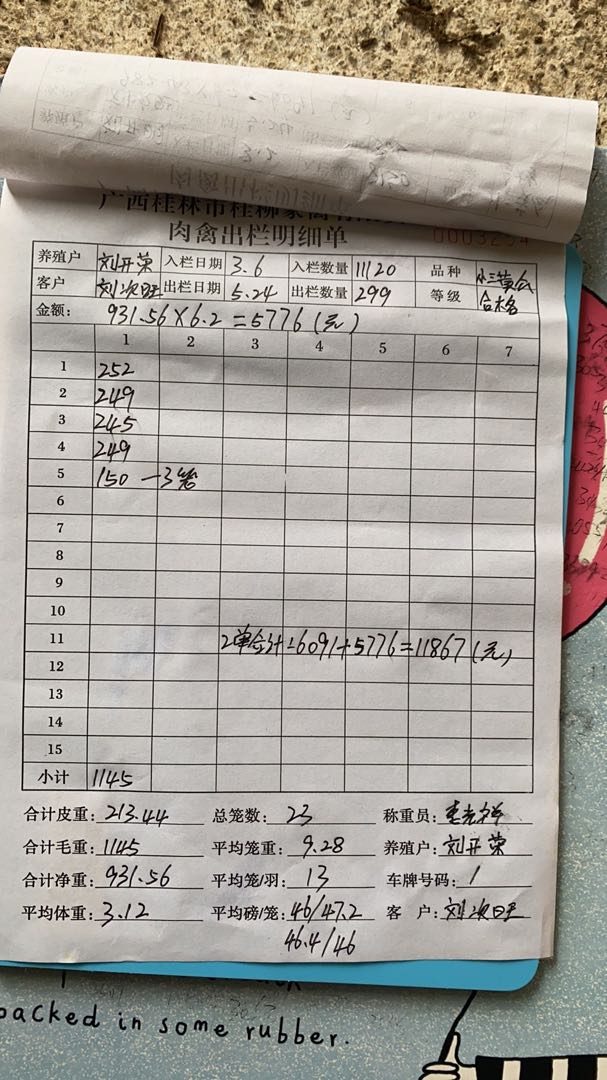 广西桂林市桂柳家禽有
肉禽出栏明细单 0003254
养殖户 刘开荣 入栏日期 3.6 入栏数量 11120 品种 小三黄
客户 刘次旺 出栏日期 5.24 出栏数量 299 等级 合格
金额: 931.56×6.2=5776(元)
1 2 3 4 5 6 7
1 252
2 249
3 245
4 249
5 150 一3笼
6
7
8
9
10
11 2单合计=6091+5776=11867(元)
12
13
14
15
小计 1145
合计皮重: 213.44 总笼数: 23 称重员:
合计毛重: 1145 平均笼重: 9.28 养殖户: 刘开荣
合计净重: 931.56 平均笼/羽: 13 车牌号码: /
平均体重: 3.12 平均磅/笼: 46/47.2 客 户: 刘次旺
46.4/46
packed in some rubber.